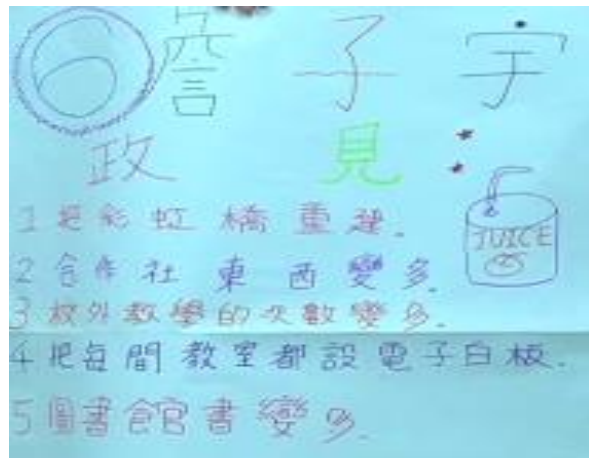 6 詹子宇
政見
1 把彩虹橋重建.
2 合作社東西變多.
3 校外教學的次數變多.
4 把每間教室都設電子白板.
5 圖書館書變多.
JUICE